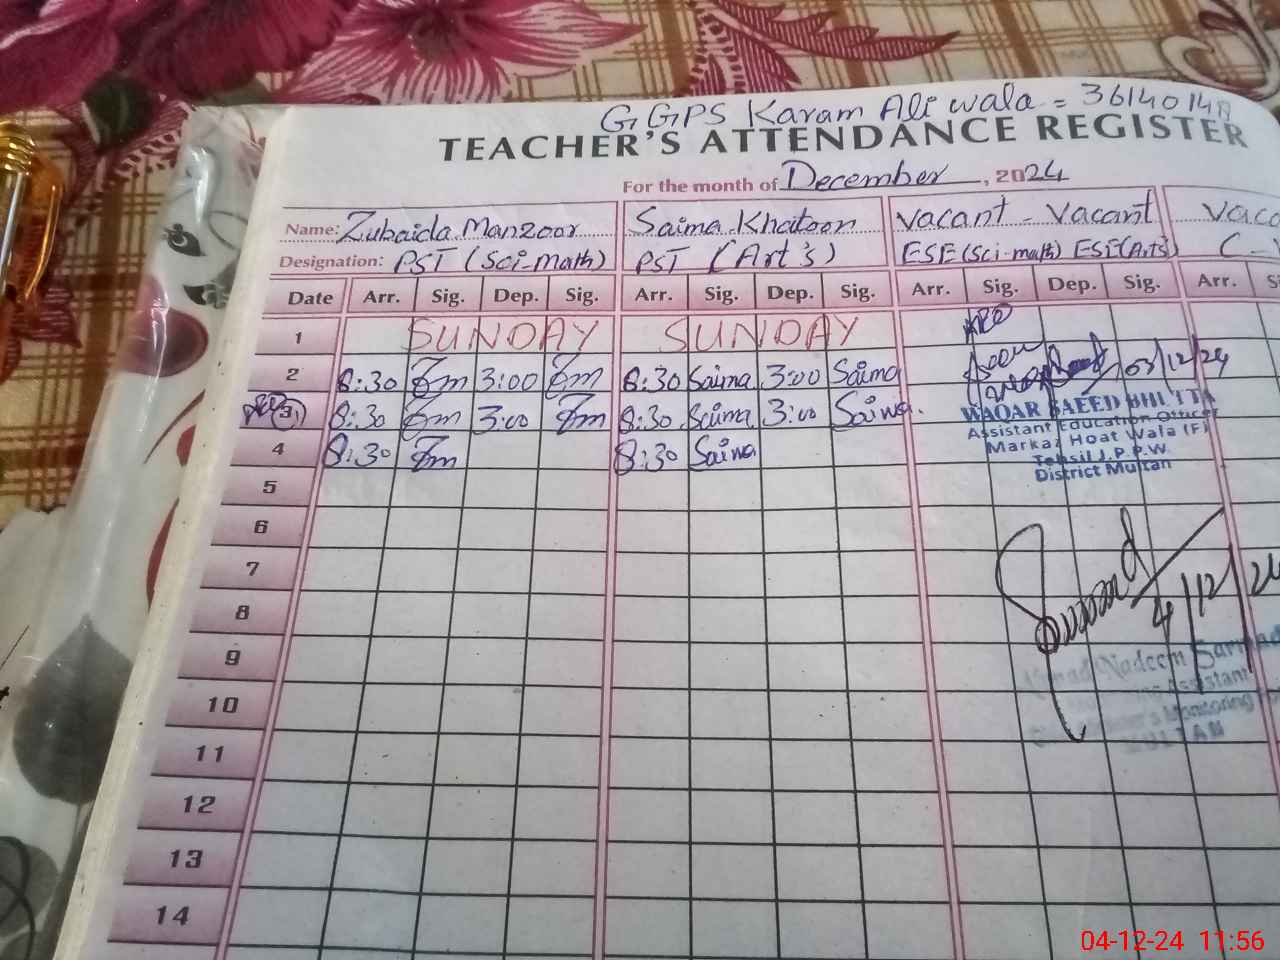 GGPS Karam Ali wala = 36140148
TEACHER'S ATTENDANCE REGISTER
For the month of December, 2024
Name: Zubaida Manzoor Saima Khatoon Vacant - Vacant
Designation: PST (Sci-math) PST (Art's) ESE (Sci-math) ESE (Arts) C -
Date Arr. Sig. Dep. Sig. Arr. Sig. Dep. Sig. Arr. Sig. Dep. Sig. Arr.
1 SUNDAY SUNDAY AEO
2 8:30 Zm 3:00 Zm 8:30 Saima 3:00 Saima Seen 03/12/24
AEO 3 8:30 Zm 3:00 Zm 8:30 Saima 3:00 Saima.
WAQAR SAEED BHUTTA
Assistant Education Officer
Markaz Hoat Wala (F)
Tehsil J.P.P.W.
District Multan
4 8:30 Zm 8:30 Saima
5
6
7
8 4/12/24
9 Nadeem Sarmad
10 Assistant
Monitoring
11 MULTAN
12
13
14
04-12-24 11:56